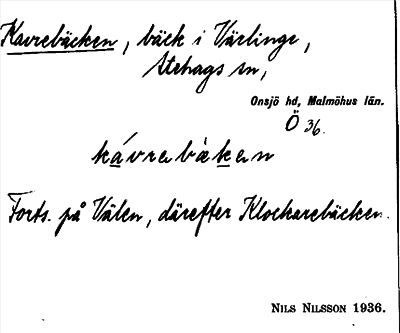 Kavrebäcken, bäck i Värlinge,
Stehags sn,
Onsjö hd, Malmöhus län.
Ö 36.
kávrabäkan
Forts. på Välen, därefter Klockarebäcken.
NILS NILSSON 1936.